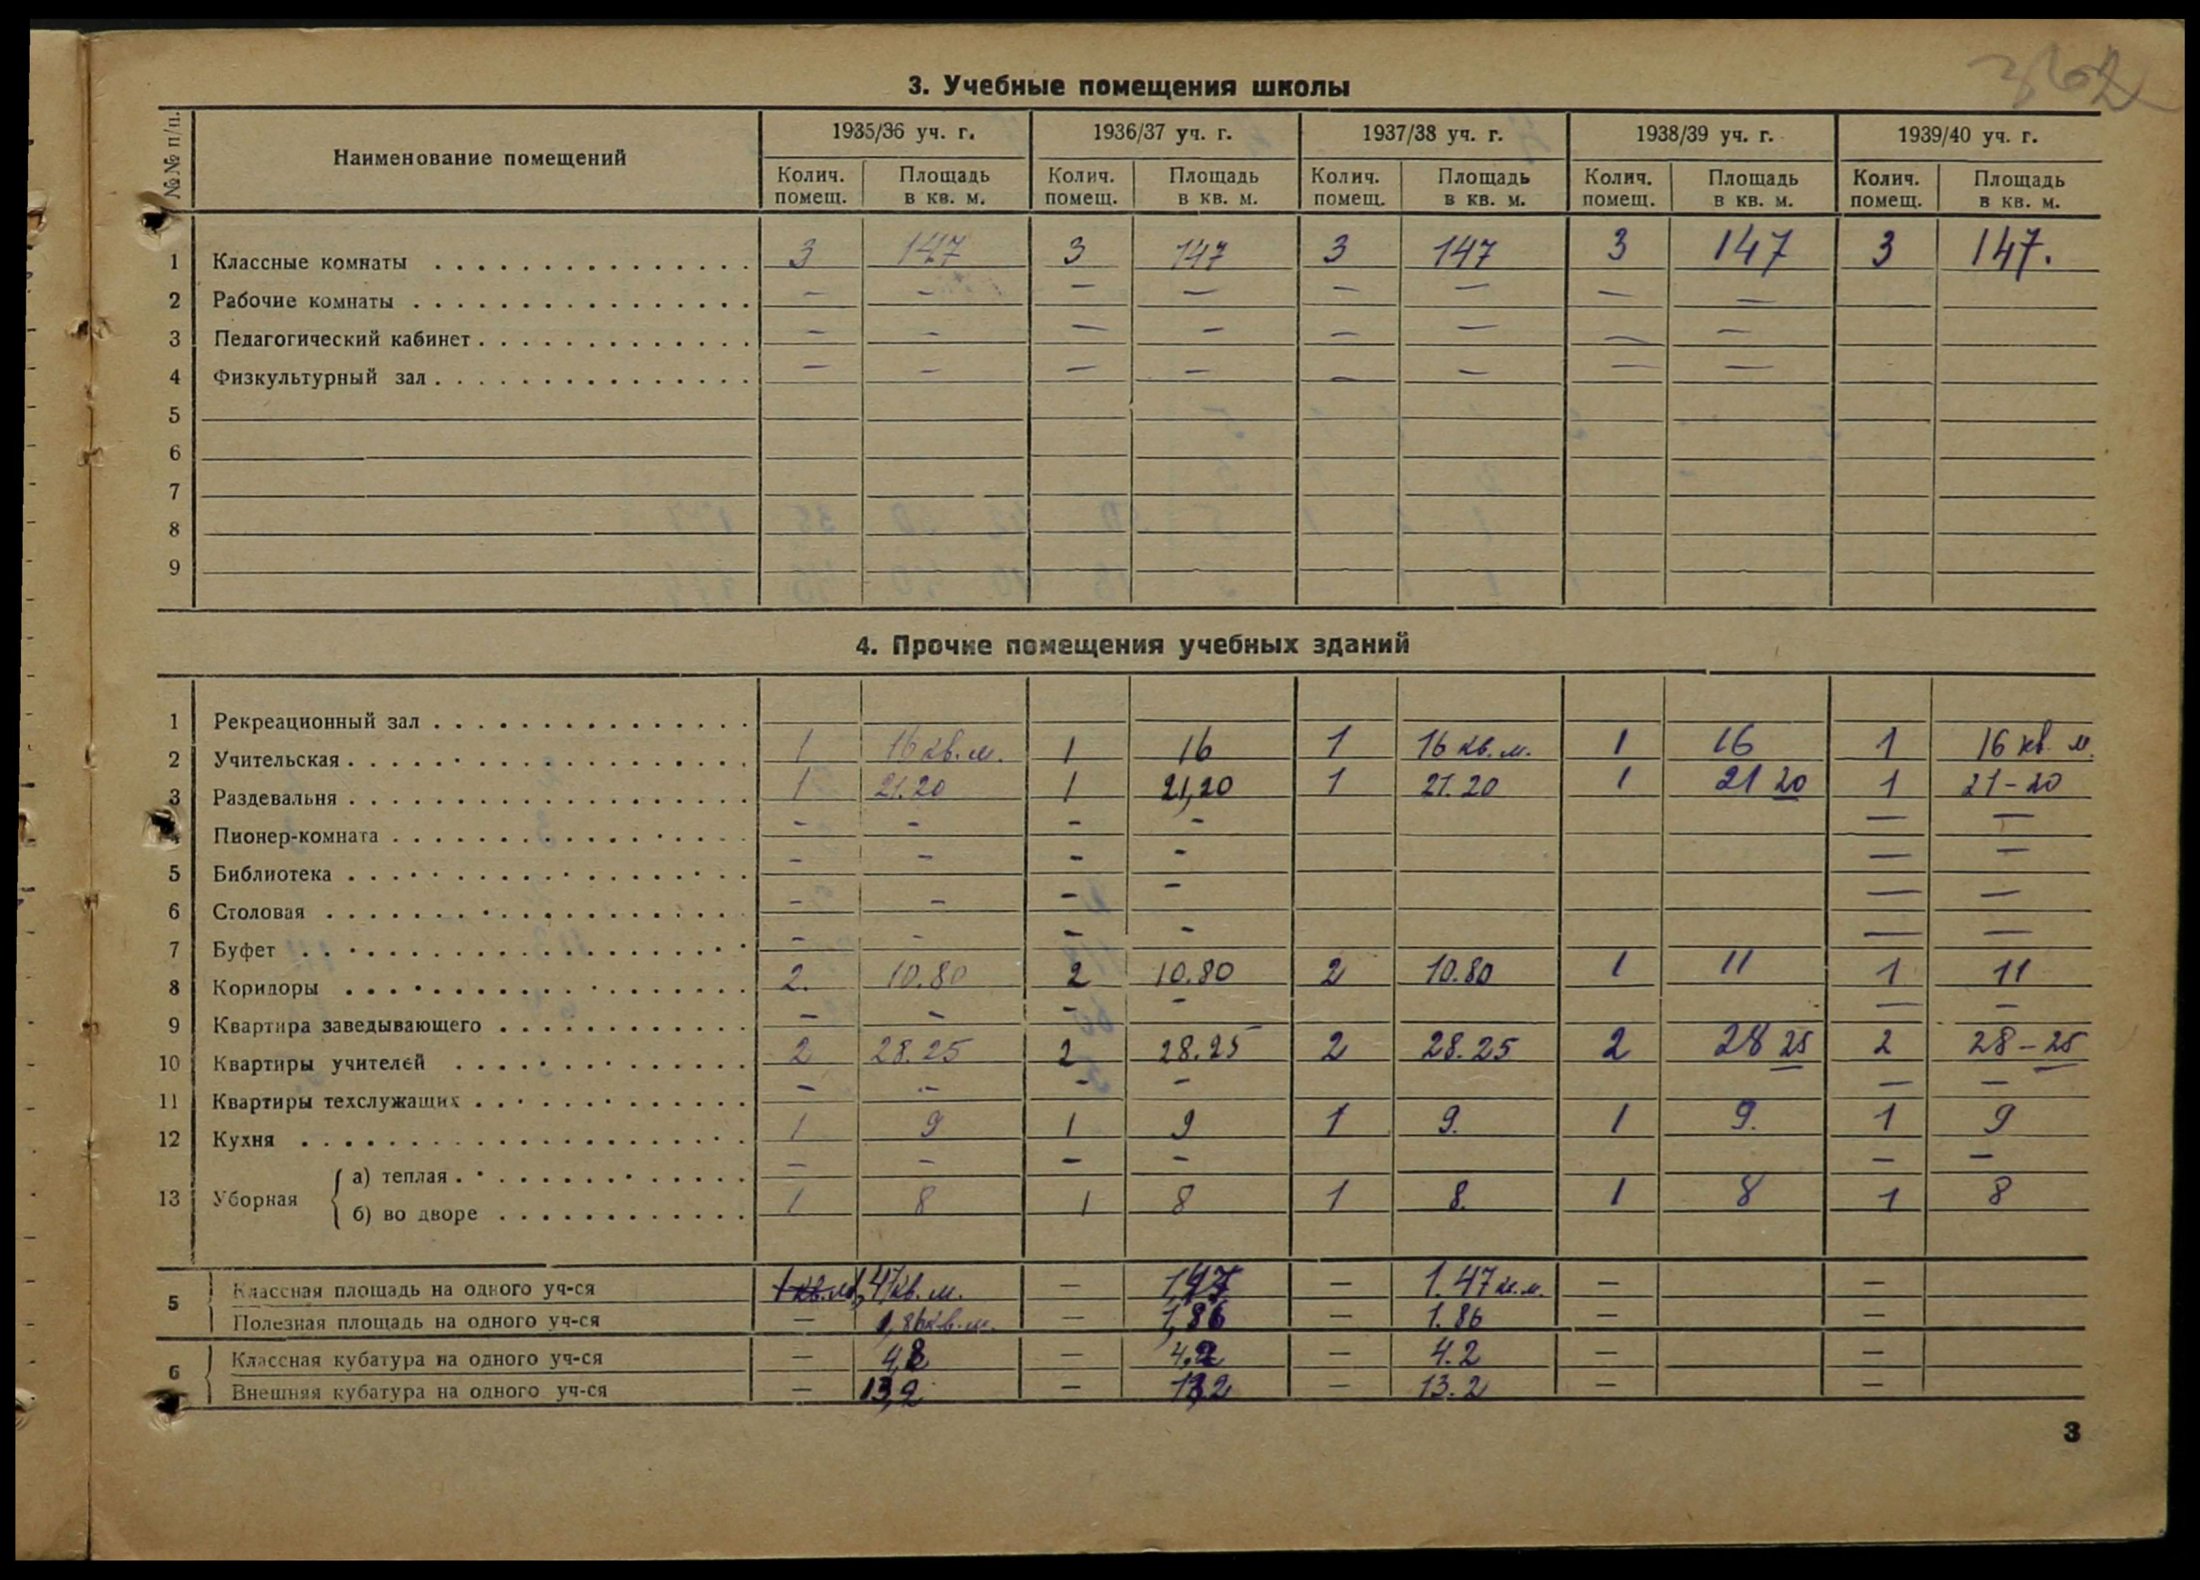 3. Учебные помещения школы
№№ п/п. Наименование помещений 1935/36 уч. г. 1936/37 уч. г. 1937/38 уч. г. 1938/39 уч. г. 1939/40 уч. г.
Колич. помещ. Площадь в кв. м. Колич. помещ. Площадь в кв. м. Колич. помещ. Площадь в кв. м. Колич. помещ. Площадь в кв. м. Колич. помещ. Площадь в кв. м.
1 Классные комнаты 3 147 3 147 3 147 3 147 3 147.
2 Рабочие комнаты — — — — — — — —
3 Педагогический кабинет — — — — — — — —
4 Физкультурный зал — — — — — — — —
5
6
7
8
9
4. Прочие помещения учебных зданий
1 Рекреационный зал
2 Учительская 1 16 кв.м. 1 16 1 16 кв.м. 1 16 1 16 кв м.
3 Раздевальня 1 21.20 1 21,20 1 21.20 1 21 20 1 21-20
4 Пионер-комната — — — — — —
5 Библиотека — — — — — —
6 Столовая — — — — — —
7 Буфет — — — — — —
8 Коридоры 2. 10.80 2 10.80 2 10.80 1 11 1 11
9 Квартира заведывающего — — — — — —
10 Квартиры учителей 2 28.25 2 28.25 2 28.25 2 28 25 2 28-25
11 Квартиры техслужащих — — — — — —
12 Кухня 1 9 1 9 1 9. 1 9. 1 9
13 Уборная а) теплая — — — — — —
б) во дворе 1 8 1 8 1 8. 1 8 1 8
5 Классная площадь на одного уч-ся 1 кв.м 1,47 кв.м. — 1,47 — 1.47 кв.м. — —
Полезная площадь на одного уч-ся — 1,86 кв.м. — 1,86 — 1.86 — —
6 Классная кубатура на одного уч-ся — 4,2 — 4,2 — 4.2 — —
Внешняя кубатура на одного уч-ся — 13,2 — 13,2 — 13.2 — —
3